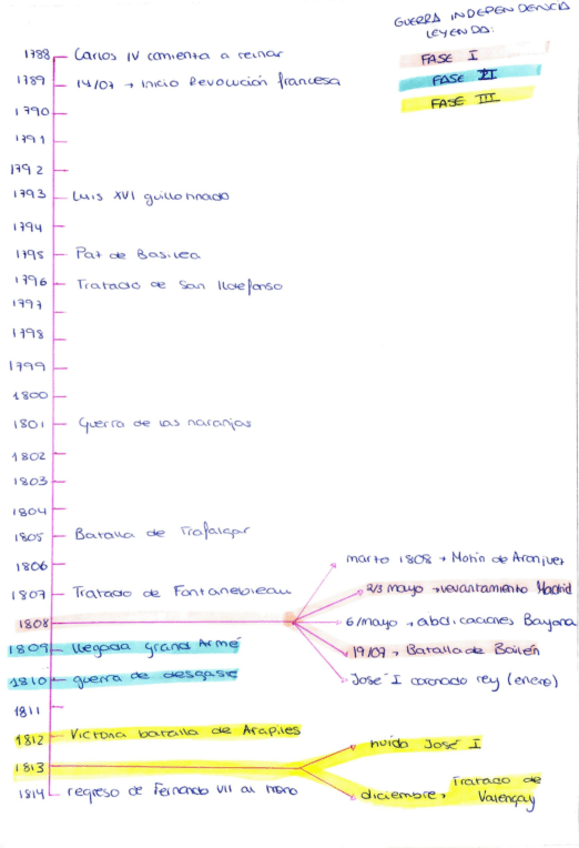 GUERRA INDEPENDENCIA
LEYENDA:
FASE I
FASE II
FASE III
1788 Carlos IV comienza a reinar
1789 14/07 → Inicio Revolución francesa
1790
1791
1792
1793 Luis XVI guillotinado
1794
1795 Paz de Basilea
1796 Tratado de San Ildefonso
1797
1798
1799
1800
1801 Guerra de las naranjas
1802
1803
1804
1805 Batalla de Trafalgar
1806
1807 Tratado de Fontanebleau
1808
marzo 1808 → Motín de Aranjuez
2/3 mayo → levantamiento Madrid
6/mayo → abdicaciones Bayona
19/07 → Batalla de Bailén
José I coronado rey (enero)
1809 llegada Grand Armé
1810 guerra de desgaste
1811
1812 Victoria batalla de Arapiles
1813
huida José I
diciembre → Tratado de
Valençay
1814 regreso de Fernando VII al trono